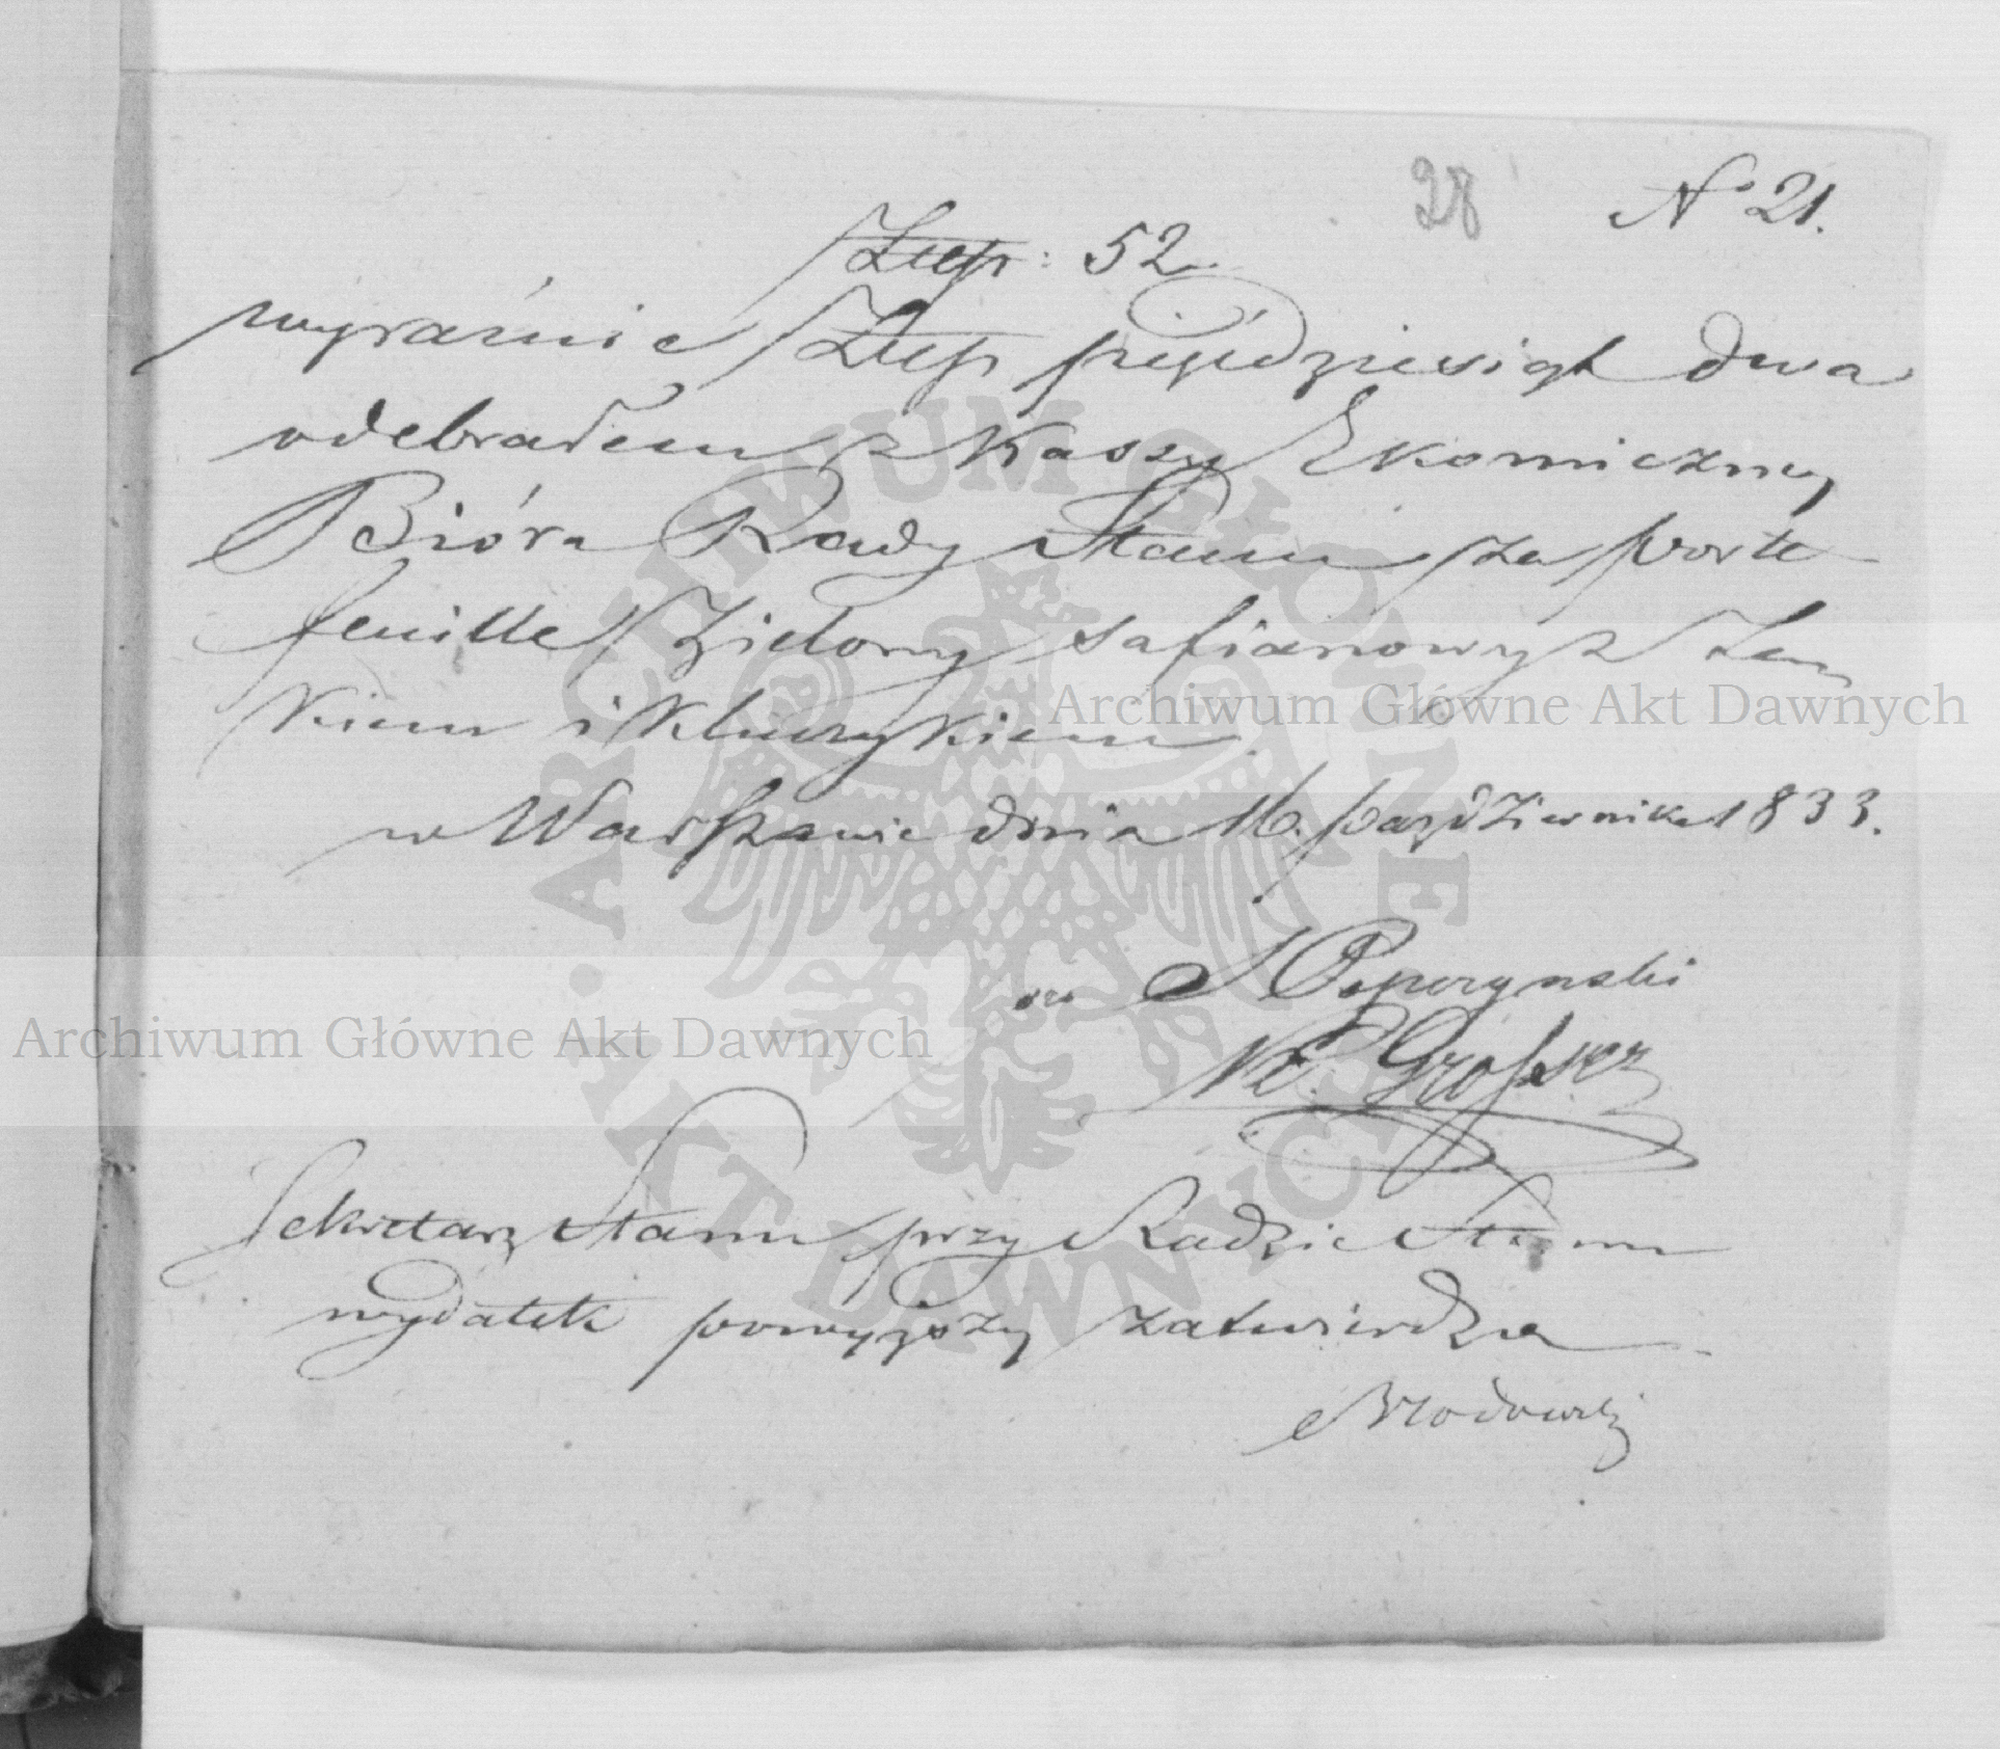 28 No 21.
Złtp: 52.
wyraźnie Złtp pięćdziesiąt dwa
odebrałem z Kassy Ekomiczney
Bióra Rady Stanu za porte
feuille Zielony safianowy z Zam
kiem i Kluczykiem.
w Warszawie dnia 16. października 1833.
N. E. Grosser
Sekretarz Stanu przy Radzie Stanu
wydatek powyższy zatwierdza
Brodowski
Archiwum Główne Akt Dawnych
Archiwum Główne Akt Dawnych
ARCHIWUM GŁÓWNE AKT DAWNYCH